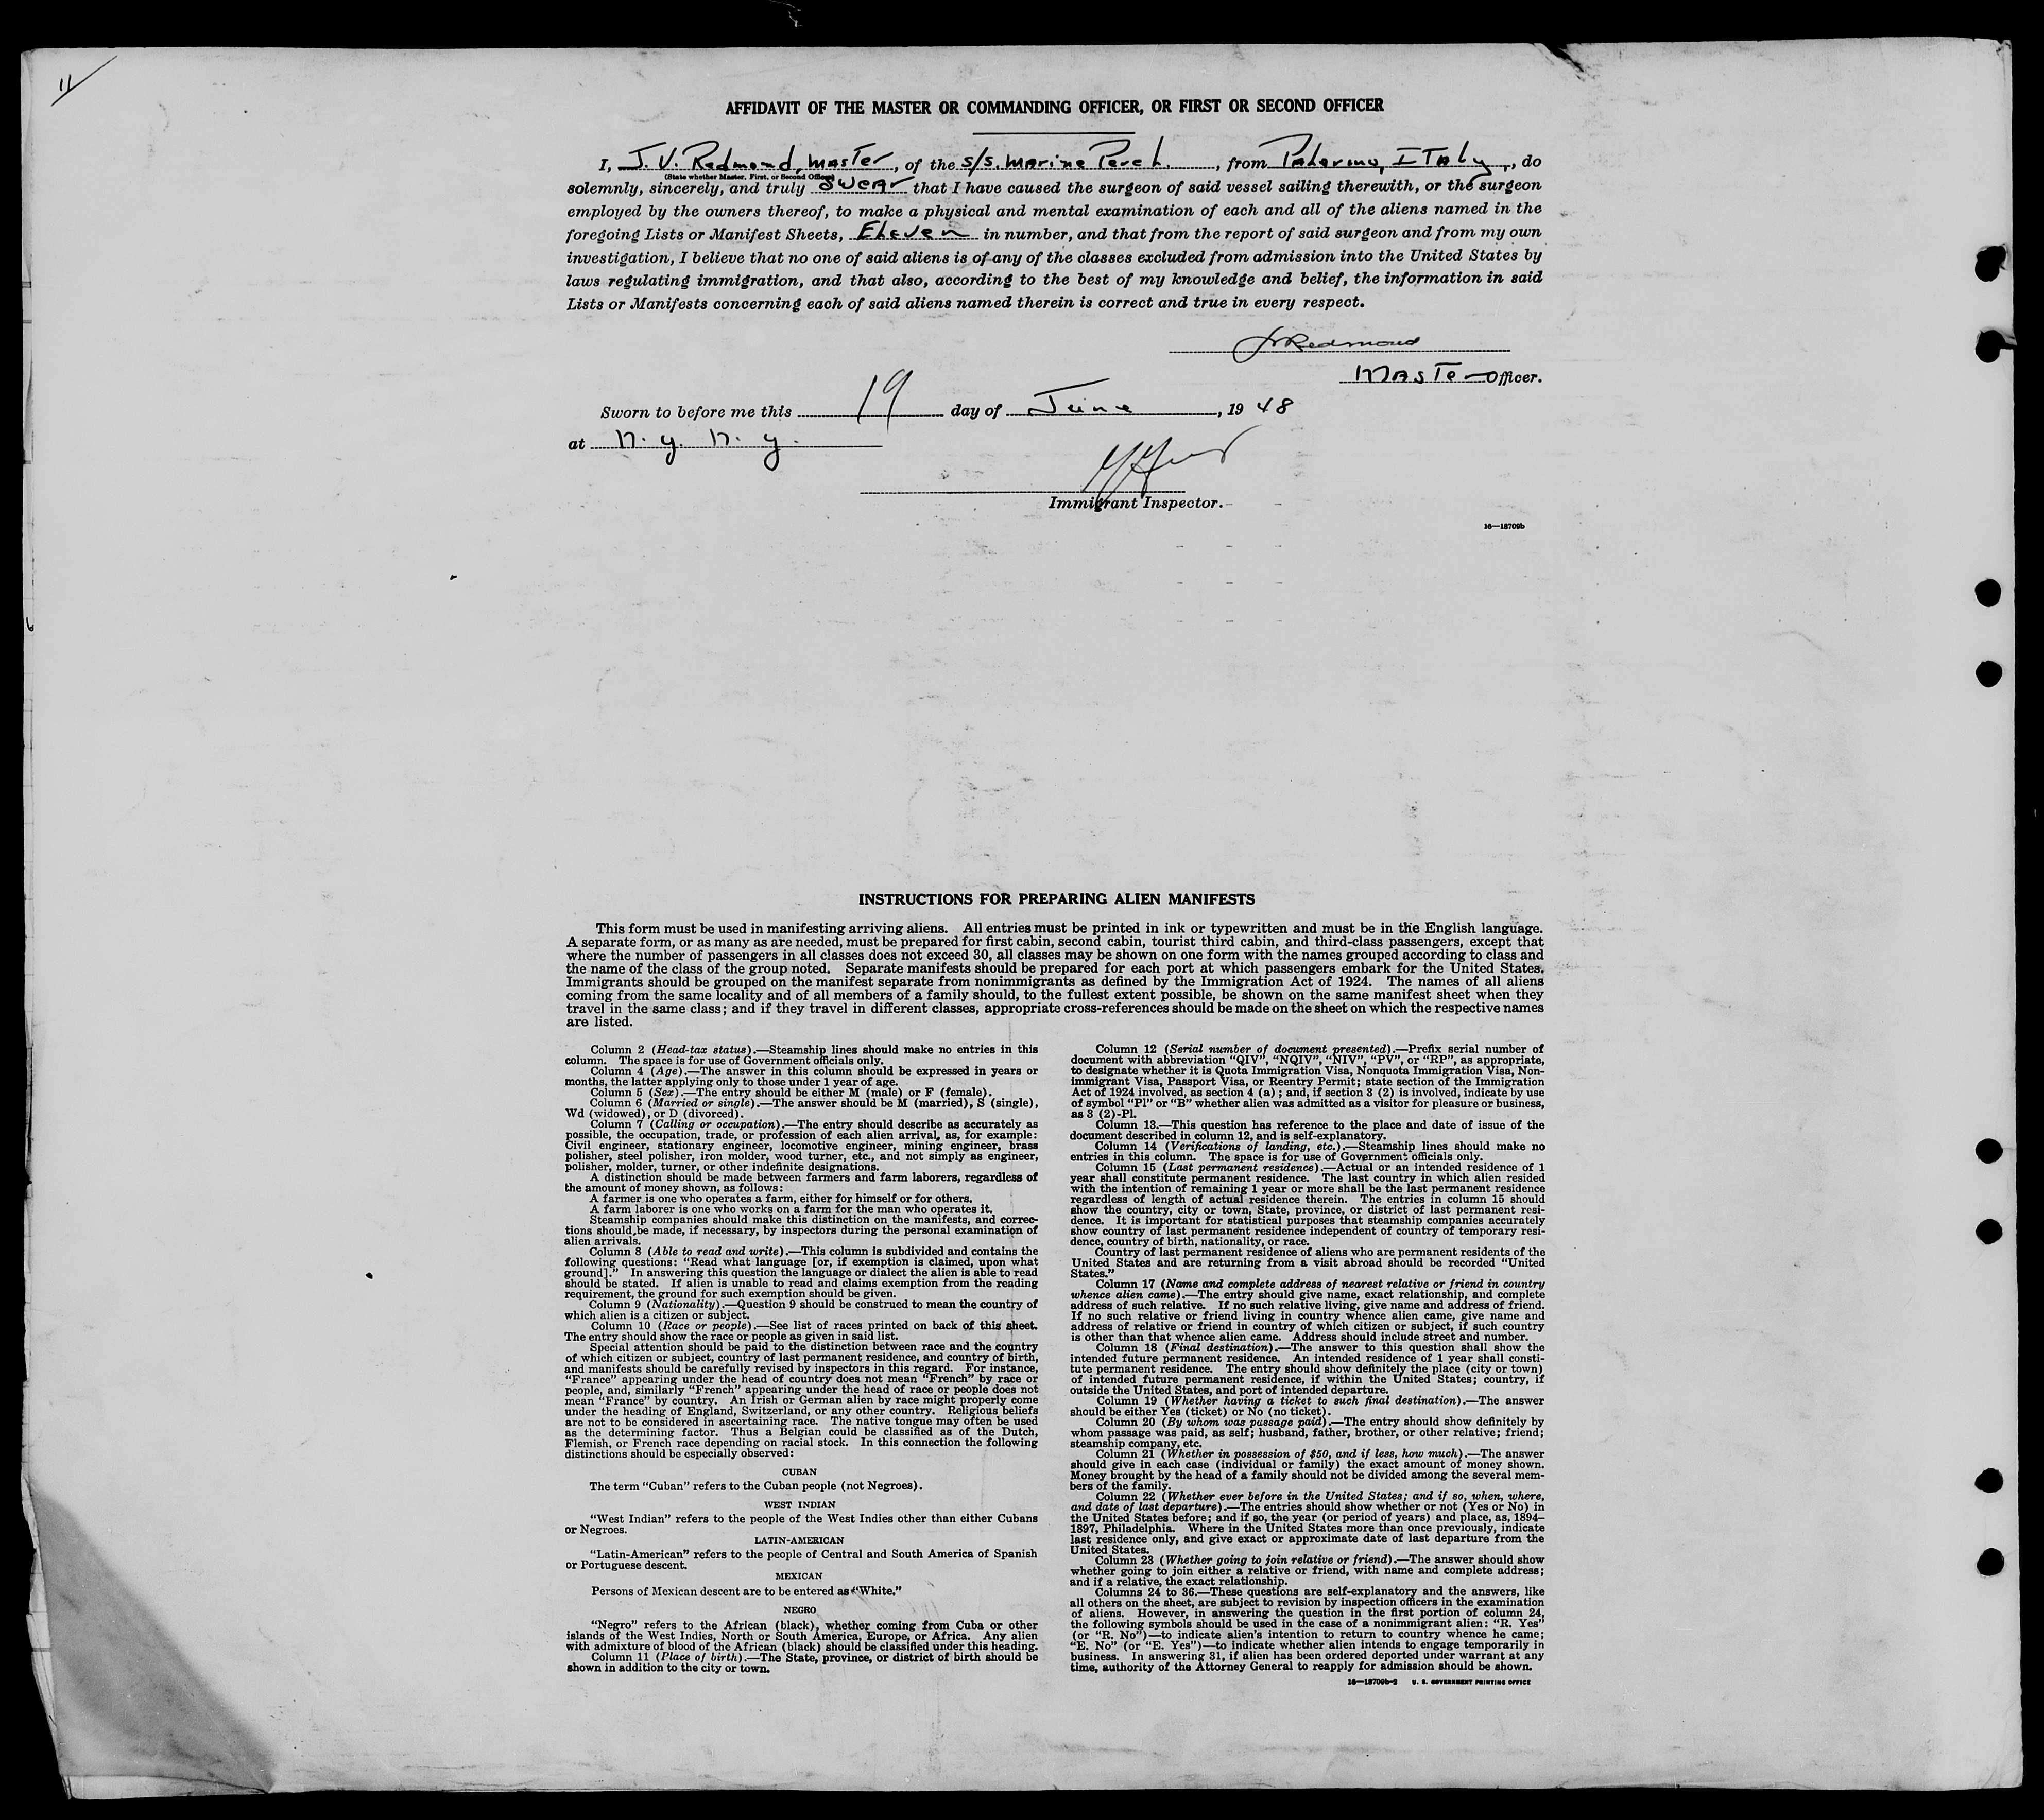 11
AFFIDAVIT OF THE MASTER OR COMMANDING OFFICER, OR FIRST OR SECOND OFFICER
I, J. V. Redmond, Master, of the s/s. Marine Perch, from Palermo, Italy, do
(State whether Master, First, or Second Officer)
solemnly, sincerely, and truly swear that I have caused the surgeon of said vessel sailing therewith, or the surgeon
employed by the owners thereof, to make a physical and mental examination of each and all of the aliens named in the
foregoing Lists or Manifest Sheets, Eleven in number, and that from the report of said surgeon and from my own
investigation, I believe that no one of said aliens is of any of the classes excluded from admission into the United States by
laws regulating immigration, and that also, according to the best of my knowledge and belief, the information in said
Lists or Manifests concerning each of said aliens named therein is correct and true in every respect.
JVRedmond
Master Officer.
Sworn to before me this 19 day of June, 1948
at N.Y. N.Y.
Immigrant Inspector.
16—18709b
INSTRUCTIONS FOR PREPARING ALIEN MANIFESTS
This form must be used in manifesting arriving aliens. All entries must be printed in ink or typewritten and must be in the English language.
A separate form, or as many as are needed, must be prepared for first cabin, second cabin, tourist third cabin, and third-class passengers, except that
where the number of passengers in all classes does not exceed 30, all classes may be shown on one form with the names grouped according to class and
the name of the class of the group noted. Separate manifests should be prepared for each port at which passengers embark for the United States.
Immigrants should be grouped on the manifest separate from nonimmigrants as defined by the Immigration Act of 1924. The names of all aliens
coming from the same locality and of all members of a family should, to the fullest extent possible, be shown on the same manifest sheet when they
travel in the same class; and if they travel in different classes, appropriate cross-references should be made on the sheet on which the respective names
are listed.
Column 2 (Head-tax status).—Steamship lines should make no entries in this
column. The space is for use of Government officials only.
Column 4 (Age).—The answer in this column should be expressed in years or
months, the latter applying only to those under 1 year of age.
Column 5 (Sex).—The entry should be either M (male) or F (female).
Column 6 (Married or single).—The answer should be M (married), S (single),
Wd (widowed), or D (divorced).
Column 7 (Calling or occupation).—The entry should describe as accurately as
possible, the occupation, trade, or profession of each alien arrival, as, for example:
Civil engineer, stationary engineer, locomotive engineer, mining engineer, brass
polisher, steel polisher, iron molder, wood turner, etc., and not simply as engineer,
polisher, molder, turner, or other indefinite designations.
A distinction should be made between farmers and farm laborers, regardless of
the amount of money shown, as follows:
A farmer is one who operates a farm, either for himself or for others.
A farm laborer is one who works on a farm for the man who operates it.
Steamship companies should make this distinction on the manifests, and correc-
tions should be made, if necessary, by inspectors during the personal examination of
alien arrivals.
Column 8 (Able to read and write).—This column is subdivided and contains the
following questions: "Read what language [or, if exemption is claimed, upon what
ground]." In answering this question the language or dialect the alien is able to read
should be stated. If alien is unable to read and claims exemption from the reading
requirement, the ground for such exemption should be given.
Column 9 (Nationality).—Question 9 should be construed to mean the country of
which alien is a citizen or subject.
Column 10 (Race or people).—See list of races printed on back of this sheet.
The entry should show the race or people as given in said list.
Special attention should be paid to the distinction between race and the country
of which citizen or subject, country of last permanent residence, and country of birth,
and manifests should be carefully revised by inspectors in this regard. For instance,
"France" appearing under the head of country does not mean "French" by race or
people, and, similarly "French" appearing under the head of race or people does not
mean "France" by country. An Irish or German alien by race might properly come
under the heading of England, Switzerland, or any other country. Religious beliefs
are not to be considered in ascertaining race. The native tongue may often be used
as the determining factor. Thus a Belgian could be classified as of the Dutch,
Flemish, or French race depending on racial stock. In this connection the following
distinctions should be especially observed:
CUBAN
The term "Cuban" refers to the Cuban people (not Negroes).
WEST INDIAN
"West Indian" refers to the people of the West Indies other than either Cubans
or Negroes.
LATIN-AMERICAN
"Latin-American" refers to the people of Central and South America of Spanish
or Portuguese descent.
MEXICAN
Persons of Mexican descent are to be entered as "White."
NEGRO
"Negro" refers to the African (black), whether coming from Cuba or other
islands of the West Indies, North or South America, Europe, or Africa. Any alien
with admixture of blood of the African (black) should be classified under this heading.
Column 11 (Place of birth).—The State, province, or district of birth should be
shown in addition to the city or town.
Column 12 (Serial number of document presented).—Prefix serial number of
document with abbreviation "QIV", "NQIV", "NIV", "PV", or "RP", as appropriate,
to designate whether it is Quota Immigration Visa, Nonquota Immigration Visa, Non-
immigrant Visa, Passport Visa, or Reentry Permit; state section of the Immigration
Act of 1924 involved, as section 4 (a); and, if section 3 (2) is involved, indicate by use
of symbol "Pl" or "B" whether alien was admitted as a visitor for pleasure or business,
as 3 (2)-Pl.
Column 13.—This question has reference to the place and date of issue of the
document described in column 12, and is self-explanatory.
Column 14 (Verifications of landing, etc.).—Steamship lines should make no
entries in this column. The space is for use of Government officials only.
Column 15 (Last permanent residence).—Actual or an intended residence of 1
year shall constitute permanent residence. The last country in which alien resided
with the intention of remaining 1 year or more shall be the last permanent residence
regardless of length of actual residence therein. The entries in column 15 should
show the country, city or town, State, province, or district of last permanent resi-
dence. It is important for statistical purposes that steamship companies accurately
show country of last permanent residence independent of country of temporary resi-
dence, country of birth, nationality, or race.
Country of last permanent residence of aliens who are permanent residents of the
United States and are returning from a visit abroad should be recorded "United
States."
Column 17 (Name and complete address of nearest relative or friend in country
whence alien came).—The entry should give name, exact relationship, and complete
address of such relative. If no such relative living, give name and address of friend.
If no such relative or friend living in country whence alien came, give name and
address of relative or friend in country of which citizen or subject, if such country
is other than that whence alien came. Address should include street and number.
Column 18 (Final destination).—The answer to this question shall show the
intended future permanent residence. An intended residence of 1 year shall consti-
tute permanent residence. The entry should show definitely the place (city or town)
of intended future permanent residence, if within the United States; country, if
outside the United States, and port of intended departure.
Column 19 (Whether having a ticket to such final destination).—The answer
should be either Yes (ticket) or No (no ticket).
Column 20 (By whom was passage paid).—The entry should show definitely by
whom passage was paid, as self; husband, father, brother, or other relative; friend;
steamship company, etc.
Column 21 (Whether in possession of $50, and if less, how much).—The answer
should give in each case (individual or family) the exact amount of money shown.
Money brought by the head of a family should not be divided among the several mem-
bers of the family.
Column 22 (Whether ever before in the United States; and if so, when, where,
and date of last departure).—The entries should show whether or not (Yes or No) in
the United States before; and if so, the year (or period of years) and place, as, 1894–
1897, Philadelphia. Where in the United States more than once previously, indicate
last residence only, and give exact or approximate date of last departure from the
United States.
Column 23 (Whether going to join relative or friend).—The answer should show
whether going to join either a relative or friend, with name and complete address;
and if a relative, the exact relationship.
Columns 24 to 36.—These questions are self-explanatory and the answers, like
all others on the sheet, are subject to revision by inspection officers in the examination
of aliens. However, in answering the question in the first portion of column 24,
the following symbols should be used in the case of a nonimmigrant alien: "R. Yes"
(or "R. No")—to indicate alien's intention to return to country whence he came;
"E. No" (or "E. Yes")—to indicate whether alien intends to engage temporarily in
business. In answering 31, if alien has been ordered deported under warrant at any
time, authority of the Attorney General to reapply for admission should be shown.
16—18709b-2 U. S. GOVERNMENT PRINTING OFFICE